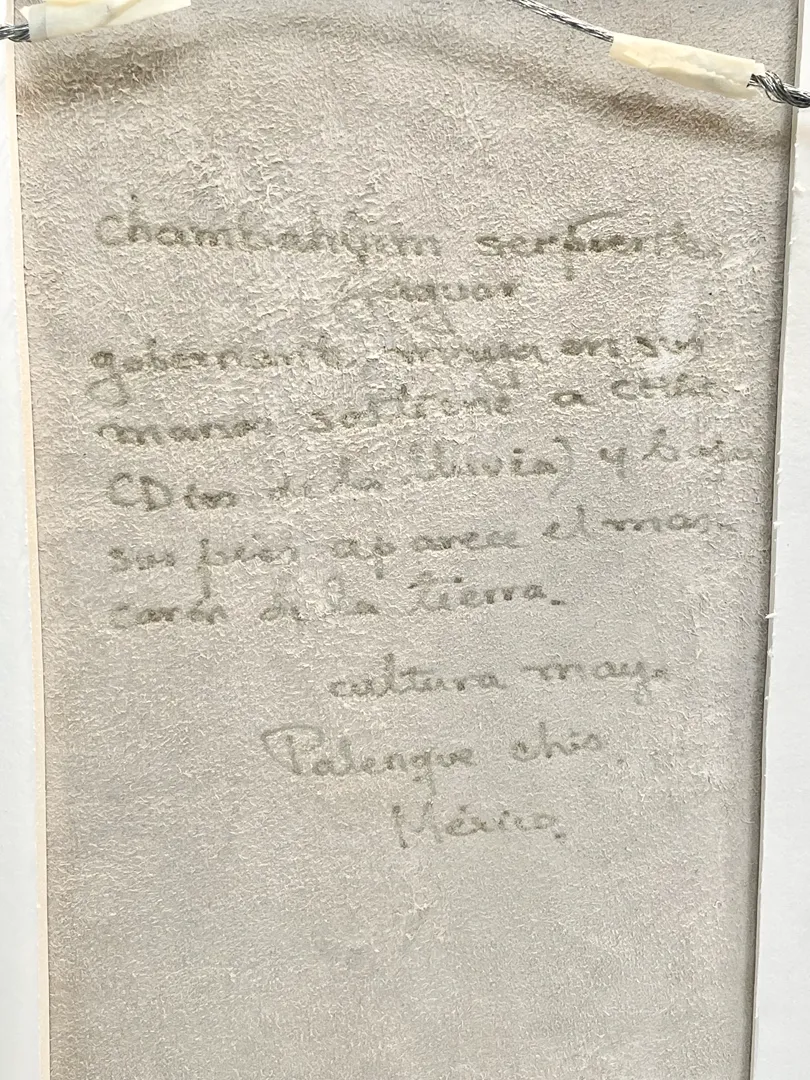 Chambahlum serpiente
jaguar
gobernante maya en sus
manos sostiene a chac
(Dios de la lluvia) y bajo
sus pies aparece el mas-
carón de la tierra.
cultura maya
Palenque chis.
México.